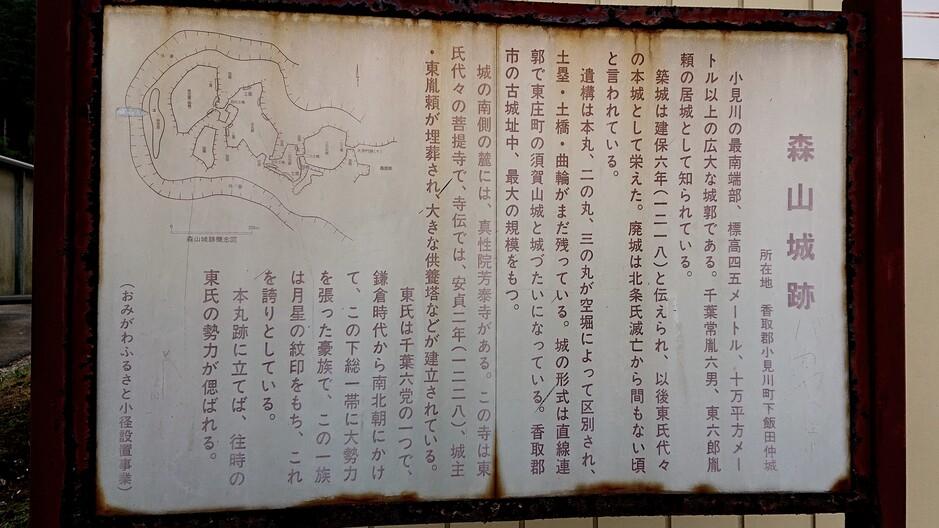 森山城跡
所在地　香取郡小見川町下飯田仲城
小見川の最南端部、標高四五メートル、十万平方メー
トル以上の広大な城郭である。千葉常胤六男、東六郎胤
頼の居城として知られている。
築城は建保六年（一二一八）と伝えられ、以後東氏代々
の本城として栄えた。廃城は北条氏滅亡から間もない頃
と言われている。
遺構は本丸、二の丸、三の丸が空堀によって区別され、
土塁・土橋・曲輪がまだ残っている。城の形式は直線連
郭で東庄町の須賀山城と城づたいになっている。香取郡
市の古城址中、最大の規模をもつ。
城の南側の麓には、真性院芳泰寺がある。この寺は東
氏代々の菩提寺で、寺伝では、安貞二年（一二二八）、城主
・東胤頼が埋葬され、大きな供養塔などが建立されている。
東氏は千葉六党の一つで、
鎌倉時代から南北朝にかけ
て、この下総一帯に大勢力
を張った豪族で、この一族
は月星の紋印をもち、これ
を誇りとしている。
本丸跡に立てば、往時の
東氏の勢力が偲ばれる。
（おみがわふるさと小径設置事業）
森山城跡概念図